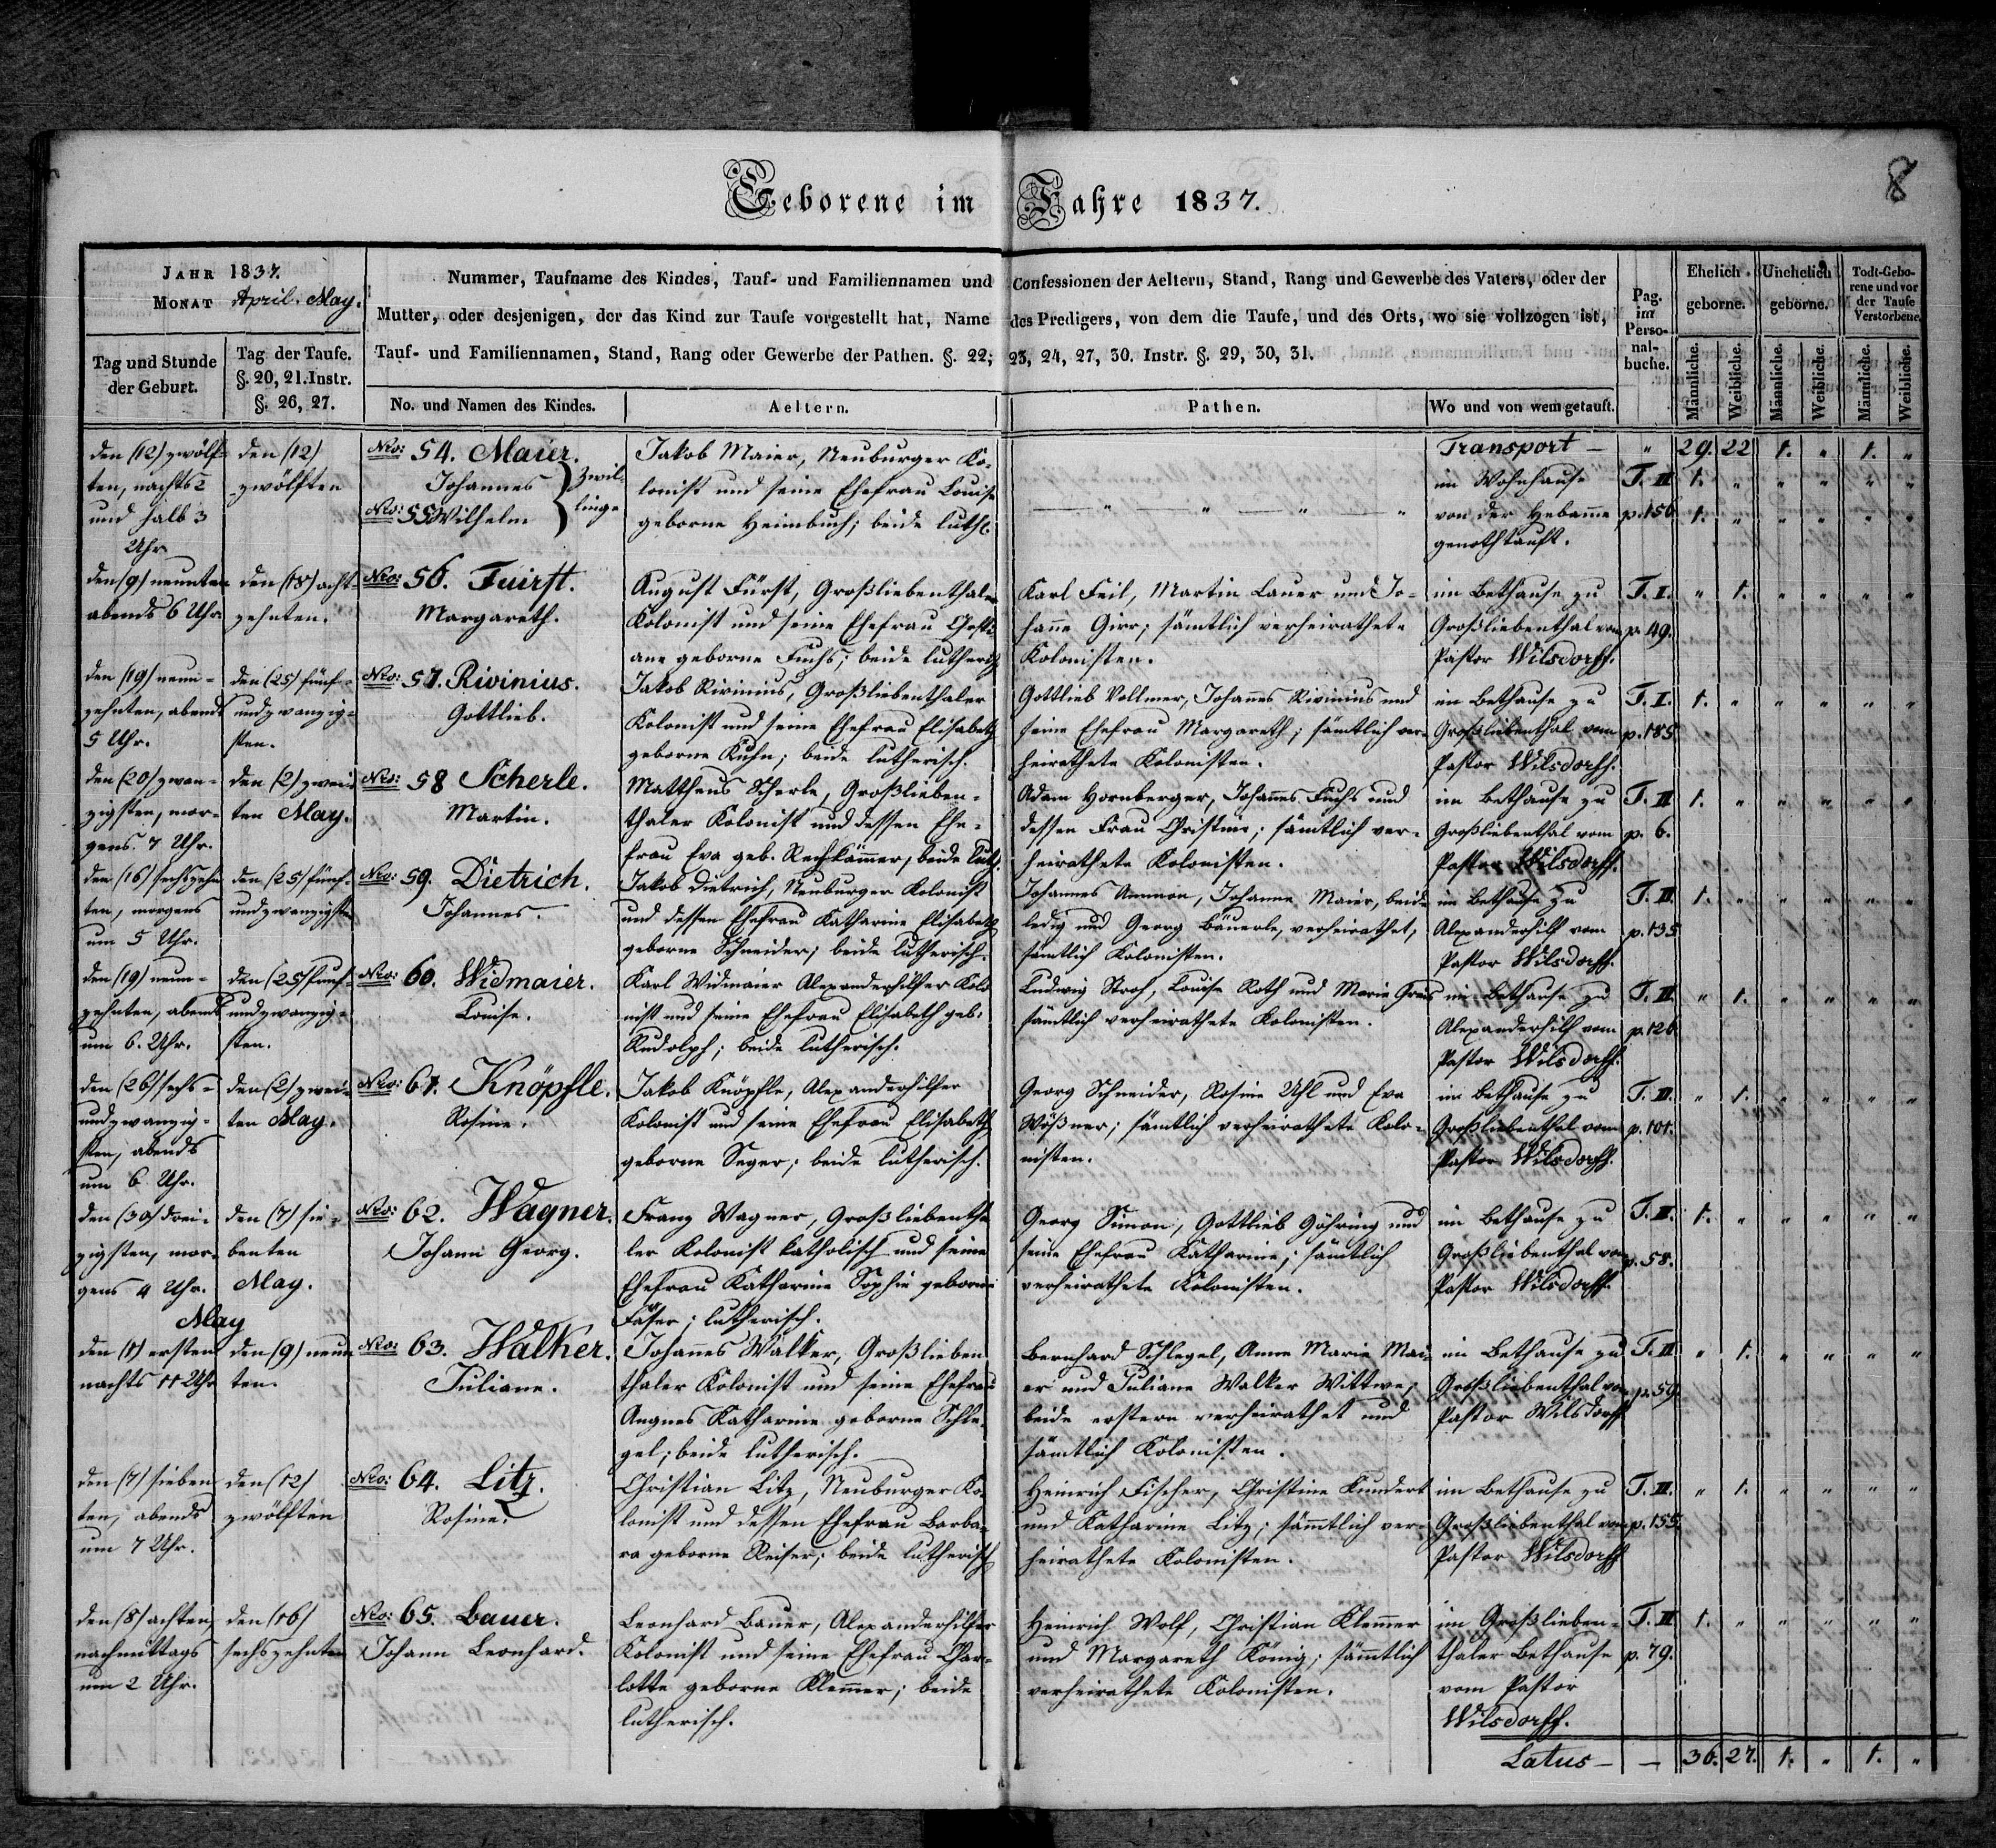 8
Geborene im Jahre 1837.
JAHR 1837.
MONAT April. May.
Tag und Stunde
der Geburt.
Tag der Taufe.
§. 20, 21. Instr.
§. 26, 27.
Nummer, Taufname des Kindes, Tauf- und Familiennamen und Confessionen der Aeltern, Stand, Rang und Gewerbe des Vaters, oder der
Mutter, oder desjenigen, der das Kind zur Taufe vorgestellt hat, Name des Predigers, von dem die Taufe, und des Orts, wo sie vollzogen ist,
Tauf- und Familiennamen, Stand, Rang oder Gewerbe der Pathen. §. 22, 23, 24, 27, 30. Instr. §. 29, 30, 31.
No. und Namen des Kindes.
Aeltern.
Pathen.
Wo und von wem getauft.
Pag.
im
Perso-
nal-
buche.
Ehelich
geborne.
Unehelich
geborne.
Todt-Gebo-
rene und vor
der Taufe
Verstorbene.
Männliche.
Weibliche.
Männliche.
Weibliche.
Männliche.
Weibliche.
Transport — " 29. 22 1. " 1. "
den (12) zwölf-
ten, nachts 2
und halb 3
Uhr
den (12)
zwölften
Nro: 54. Maier.
Johannes
Nro: 55 Wilhelm
Zwil-
linge
Jakob Maier, Neuburger Ko-
lonist und seine Ehefrau Louise
geborne Heimbuch; beide luth:
— " — " — " — "
im Wohnhause
von der Hebamme
genothtauft.
T. II 1. " " " " "
p. 156 1. " " " " "
den (9) neunten
abends 6 Uhr.
den (18) acht-
zehnten.
Nro: 56. Fuirst.
Margareth.
August Fürst, Großliebenthaler
Kolonist und seine Ehefrau Christi-
ane geborne Fuchs; beide lutherisch
Karl Feil, Martin Lauer und Jo-
hanne Girr; sämtlich verheirathete
Kolonisten.
im Bethause zu
Großliebenthal vom
Pastor Wilsdorff.
T. I. " 1. " " " "
p. 49.
den (19) neun-
zehnten, abends
5 Uhr.
den (25) fünf-
undzwanzig-
sten.
Nro: 57. Rivinius.
Gottlieb.
Jakob Rivinius, Großliebenthaler
Kolonist und seine Ehefrau Elisabeth
geborne Kuhn; beide lutherisch.
Gottlieb Vollmer, Johannes Rivinius und
seine Ehefrau Margareth; sämtlich ver-
heirathete Kolonisten.
im Bethause zu
Großliebenthal vom
Pastor Wilsdorff.
T. I. 1. " " " " "
p. 185
den (20) zwan-
zigsten, mor-
gens 7 Uhr.
den (2) zwei-
ten May.
Nro: 58 Scherle.
Martin.
Mattheus Scherle, Großlieben-
thaler Kolonist und dessen Ehe-
frau Eva geb. Rechkämmer, beide luth.
Adam Hornberger, Johannes Fuchs und
dessen Frau Christine; sämtlich ver-
heirathete Kolonisten.
im Bethause zu
Großliebenthal vom
Pastor Wilsdorff.
T. II 1. " " " " "
p. 6.
den (16) sechszehn
ten, morgens
um 5 Uhr.
den (25) fünf-
undzwanzigsten
Nro: 59. Dietrich.
Johannes.
Jakob Dietrich, Neuburger Kolonist
und dessen Ehefrau Katharine Elisabeth
geborne Schneider; beide lutherisch.
Johannes Ammon, Johanne Maier, beide
ledig und Georg Bäuerle, verheirathet,
sämtlich Kolonisten.
im Bethause zu
Alexanderhilf vom
Pastor Wilsdorff.
T. II. 1. " " " " "
p. 135
den (19) neun-
zehnten, abends
um 6. Uhr.
den (25) fünf-
undzwanzig-
sten.
Nro: 60. Widmaier.
Louise.
Karl Widmaier Alexanderhilfer Kolo
nist und seine Ehefrau Elisabeth geb.
Rudolph; beide lutherisch.
Ludwig Stroh, Louise Roth und Marie
sämtlich verheirathete Kolonisten.
im Bethause zu
Alexanderhilf vom
Pastor Wilsdorff.
T. II. " 1. " " " "
p. 126
den (26) sechs-
undzwanzig-
sten, abends
um 6 Uhr.
den (2) zwei-
ten May.
Nro: 61. Knöpfle.
Rosine.
Jakob Knöpfle, Alexanderhilfer
Kolonist und seine Ehefrau Elisabeth
geborne Seger; beide lutherisch.
Georg Schneider, Rosine Uhl und Eva
Wößner; sämtlich verheirathete Kolo-
nisten.
im Bethause zu
Großliebenthal vom
Pastor Wilsdorff.
T. II. " 1. " " " "
p. 101.
den (30) drei-
zigsten, mor-
gens 4 Uhr.
den (7) sie-
benten
May.
Nro: 62. Wagner.
Johann Georg.
Franz Wagner, Großlieventha
ler Kolonist katholisch und seine
Ehefrau Katharine Sophie geborne
Faser; lutherisch.
Georg Simon, Gottlieb Göhring und
seine Ehefrau Katharine; sämtlich
verheirathete Kolonisten.
im Bethause zu
Großliebenthal vom
Pastor Wilsdorff.
T. II. 1. " " " " "
p. 58.
May
den (1) ersten
nachts 11 Uhr
den (9) neun
ten.
Nro: 63. Walker.
Juliane.
Johannes Walker, Großlieben
thaler Kolonist und seine Ehefrau
Angnes Katharine geborne Schle-
gel; beide lutherisch.
Bernhard Schlegel, Anne Marie Mai-
er und Juliane Walker Wittwe;
beide erstern verheirathet und
sämtlich Kolonisten.
im Bethause zu
Großliebenthal vom
Pastor Wilsdorff
T. II " 1. " " " "
p. 59.
den (7) sieben
ten, abends
um 7 Uhr.
den (12)
zwölften
Nro: 64. Litz.
Rosine.
Christian Litz, Neuburger Ko-
lonist und dessen Ehefrau Barba-
ra geborne Reiser; beide lutherisch
Heinrich Fischer, Christine Kundert
und Katharine Litz; sämmtlich ver-
heirathete Kolonisten.
im Bethause zu
Großliebenthal vom
Pastor Wilsdorff
T. II. " 1. " " " "
p. 155.
den (8) achten,
nachmittags
um 2 Uhr.
den (16)
sechszehnten
Nro: 65. Bauer.
Johann Leonhard.
Leonhard Bauer, Alexanderhilfer
Kolonist und seine Ehefrau Char-
lotte geborne Klemmer; beide
lutherisch.
Heinrich Wolf, Christian Klemmer
und Margareth König; sämmtlich
verheirathete Kolonisten.
im Großlieben-
thaler Bethause
vom Pastor
Wilsdorff.
T. II 1. " " " " "
p. 79.
Latus — — 36. 27. 1. " 1. "